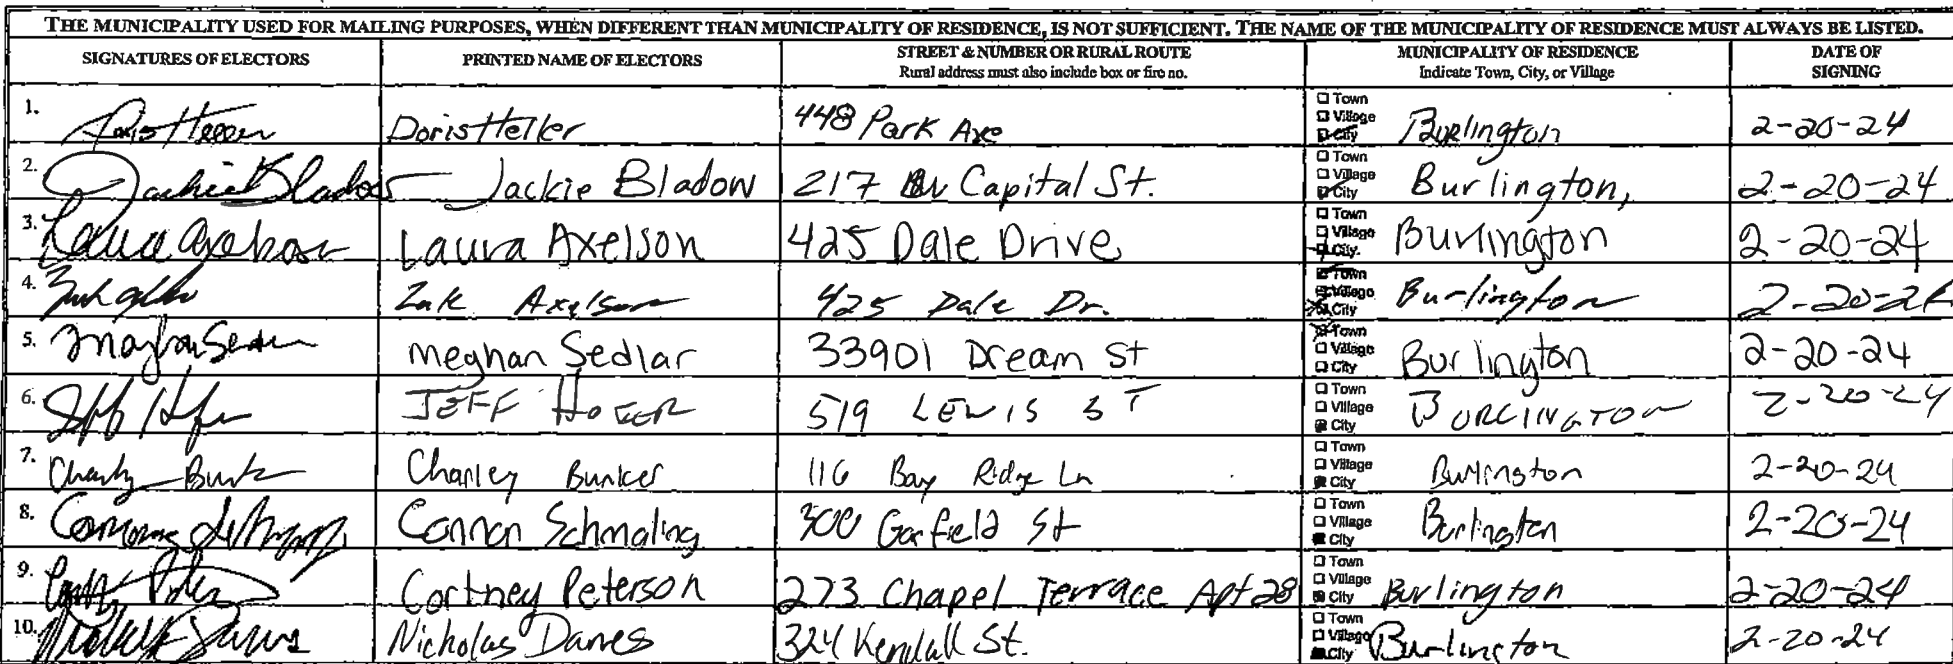 THE MUNICIPALITY USED FOR MAILING PURPOSES, WHEN DIFFERENT THAN MUNICIPALITY OF RESIDENCE, IS NOT SUFFICIENT. THE NAME OF THE MUNICIPALITY OF RESIDENCE MUST ALWAYS BE LISTED.
SIGNATURES OF ELECTORS PRINTED NAME OF ELECTORS STREET & NUMBER OR RURAL ROUTE MUNICIPALITY OF RESIDENCE DATE OF
Rural address must also include box or fire no. Indicate Town, City, or Village SIGNING
1. Doris Heller Doris Heller 448 Park Ave Town Village City Burlington 2-20-24
2. Jackie Bladow Jackie Bladow 217 Capital St. Town Village City Burlington, 2-20-24
3. Laura Axelson Laura Axelson 425 Dale Drive Town Village City Burlington 2-20-24
4. Zak Axelson 425 Dale Dr. Town Village City Burlington 2-20-24
5. Meghan Sedlar 33901 Dream St Town Village City Burlington 2-20-24
6. JEFF 519 LEWIS ST Town Village City BURLINGTON 2-20-24
7. Charley Bunker 116 Bay Ridge Ln Town Village City Burlington 2-20-24
8. Connor Schmaling 300 Garfield St Town Village City Burlington 2-20-24
9. Cortney Peterson 273 Chapel Terrace Apt 28 Town Village City Burlington 2-20-24
10. Nicholas Danes 324 Kendall St. Town Village City Burlington 2-20-24